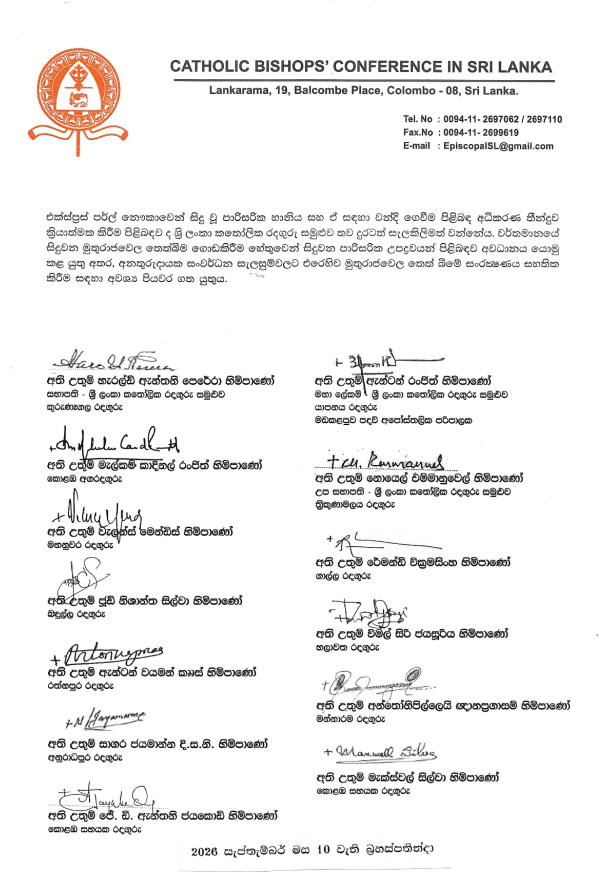 CATHOLIC BISHOPS' CONFERENCE IN SRI LANKA
Lankarama, 19, Balcombe Place, Colombo - 08, Sri Lanka.
Tel. No : 0094-11- 2697062 / 2697110
Fax.No : 0094-11- 2699619
E-mail : EpiscopalSL@gmail.com
එක්ස්ප්‍රස් පර්ල් නෞකාවෙන් සිදු වූ පාරිසරික හානිය සහ ඒ සඳහා වන්දි ගෙවීම පිළිබඳ අධිකරණ තීන්දුව
ක්‍රියාත්මක කිරීම පිළිබඳව ද ශ්‍රී ලංකා කතෝලික රදගුරු සමුළුව තව දුරටත් සැලකිලිමත් වන්නේය. වර්තමානයේ
සිදුවන මුතුරාජවෙල තෙත්බිම ගොඩකිරීම හේතුවෙන් සිදුවන පාරිසරික උපද්‍රවයන් පිළිබඳව අවධානය යොමු
කළ යුතු අතර, අනතුරුදායක සංවර්ධන සැලසුම්වලට එරෙහිව මුතුරාජවෙල තෙත් බිමේ සංරක්ෂණය සහතික
කිරීම සඳහා අවශ්‍ය පියවර ගත යුතුය.
අති උතුම් හැරල්ඩ් ඇන්තනි පෙරේරා හිමිපාණෝ
සභාපති - ශ්‍රී ලංකා කතෝලික රදගුරු සමුළුව
කුරුණෑගල රදගුරු
අති උතුම් ඇන්ටන් රංජිත් හිමිපාණෝ
මහා ලේකම් - ශ්‍රී ලංකා කතෝලික රදගුරු සමුළුව
යාපනය රදගුරු
මඩකළපුව පදවි අපෝස්තලික පරිපාලක
අති උතුම් මැල්කම් කාදිනල් රංජිත් හිමිපාණෝ
කොළඹ අගරදගුරු
අති උතුම් නොයෙල් එම්මානුවෙල් හිමිපාණෝ
උප සභාපති - ශ්‍රී ලංකා කතෝලික රදගුරු සමුළුව
ත්‍රිකුණාමලය රදගුරු
අති උතුම් වැලන්ස් මෙන්ඩිස් හිමිපාණෝ
මහනුවර රදගුරු
අති උතුම් රේමන්ඩ් වික්‍රමසිංහ හිමිපාණෝ
ගාල්ල රදගුරු
අති උතුම් ජූඩ් නිශාන්ත සිල්වා හිමිපාණෝ
බදුල්ල රදගුරු
අති උතුම් විමල් සිරි ජයසූරිය හිමිපාණෝ
හලාවත රදගුරු
අති උතුම් ඇන්ටන් වයමන් කෲස් හිමිපාණෝ
රත්නපුර රදගුරු
අති උතුම් අන්තෝනිපිල්ලෙයි ඥානප්‍රගාසම් හිමිපාණෝ
මන්නාරම රදගුරු
+ N Jayamanne
අති උතුම් සාගර ජයමාන්න ද.ස.නි. හිමිපාණෝ
අනුරාධපුර රදගුරු
+ Maxwell Silva
අති උතුම් මැක්ස්වල් සිල්වා හිමිපාණෝ
කොළඹ සහයක රදගුරු
අති උතුම් ජේ. ඩී. ඇන්තනි ජයකොඩි හිමිපාණෝ
කොළඹ සහයක රදගුරු
2026 සැප්තැම්බර් මස 10 වැනි බ්‍රහස්පතින්දා